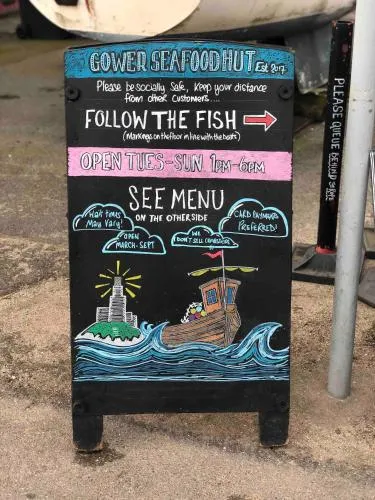 GOWER SEAFOOD HUT Est 2017
Please be socially safe, keep your distance
from other customers....
FOLLOW THE FISH
(Markings on the floor in line with the boats)
OPEN TUES-SUN 1PM-6PM
SEE MENU
ON THE OTHERSIDE
Wait times
May Vary!
OPEN
MARCH-SEPT
WE
DON'T SELL
CARD PAYMENTS
PREFERRED!
PLEASE QUEUE BEHIND